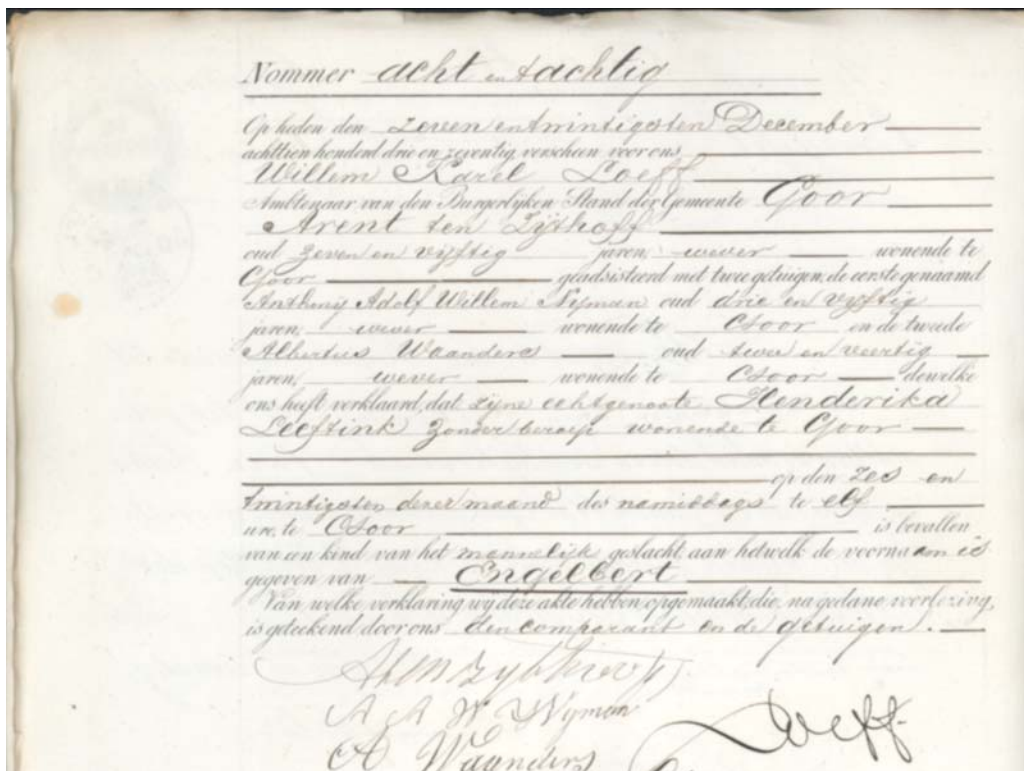 Nommer acht en tachtig
Op heden den zeven en twintigsten December
achttien honderd drie en zeventig, verscheen voor ons
Willem Karel Loeff
Ambtenaar van den Burgerlyken Stand der Gemeente Goor
Arent ten Zijthoff
oud zeven en vijftig jaren, wever wonende te
Goor geadsisteerd met twee getuigen, de eerste genaamd
Anthonij Adolf Willem Nijman oud drie en vijftig
jaren, wever wonende te Goor en de tweede
Albertus Waanders oud twee en veertig
jaren, wever wonende te Goor dewelke
ons heeft verklaard, dat zijne echtgenoote Henderika
Leeftink zonder beroep wonende te Goor
op den zes en
twintigsten dezer maand des namiddags te elf
ure, te Goor is bevallen
van een kind van het mannelijk geslacht, aan hetwelk de voornaam is
gegeven van Engelbert
Van welke verklaring wy deze akte hebben opgemaakt, die, na gedane voorlezing,
is geteekend door ons den comparant en de getuigen.
A A W Nijman
Loeff
A Waanders